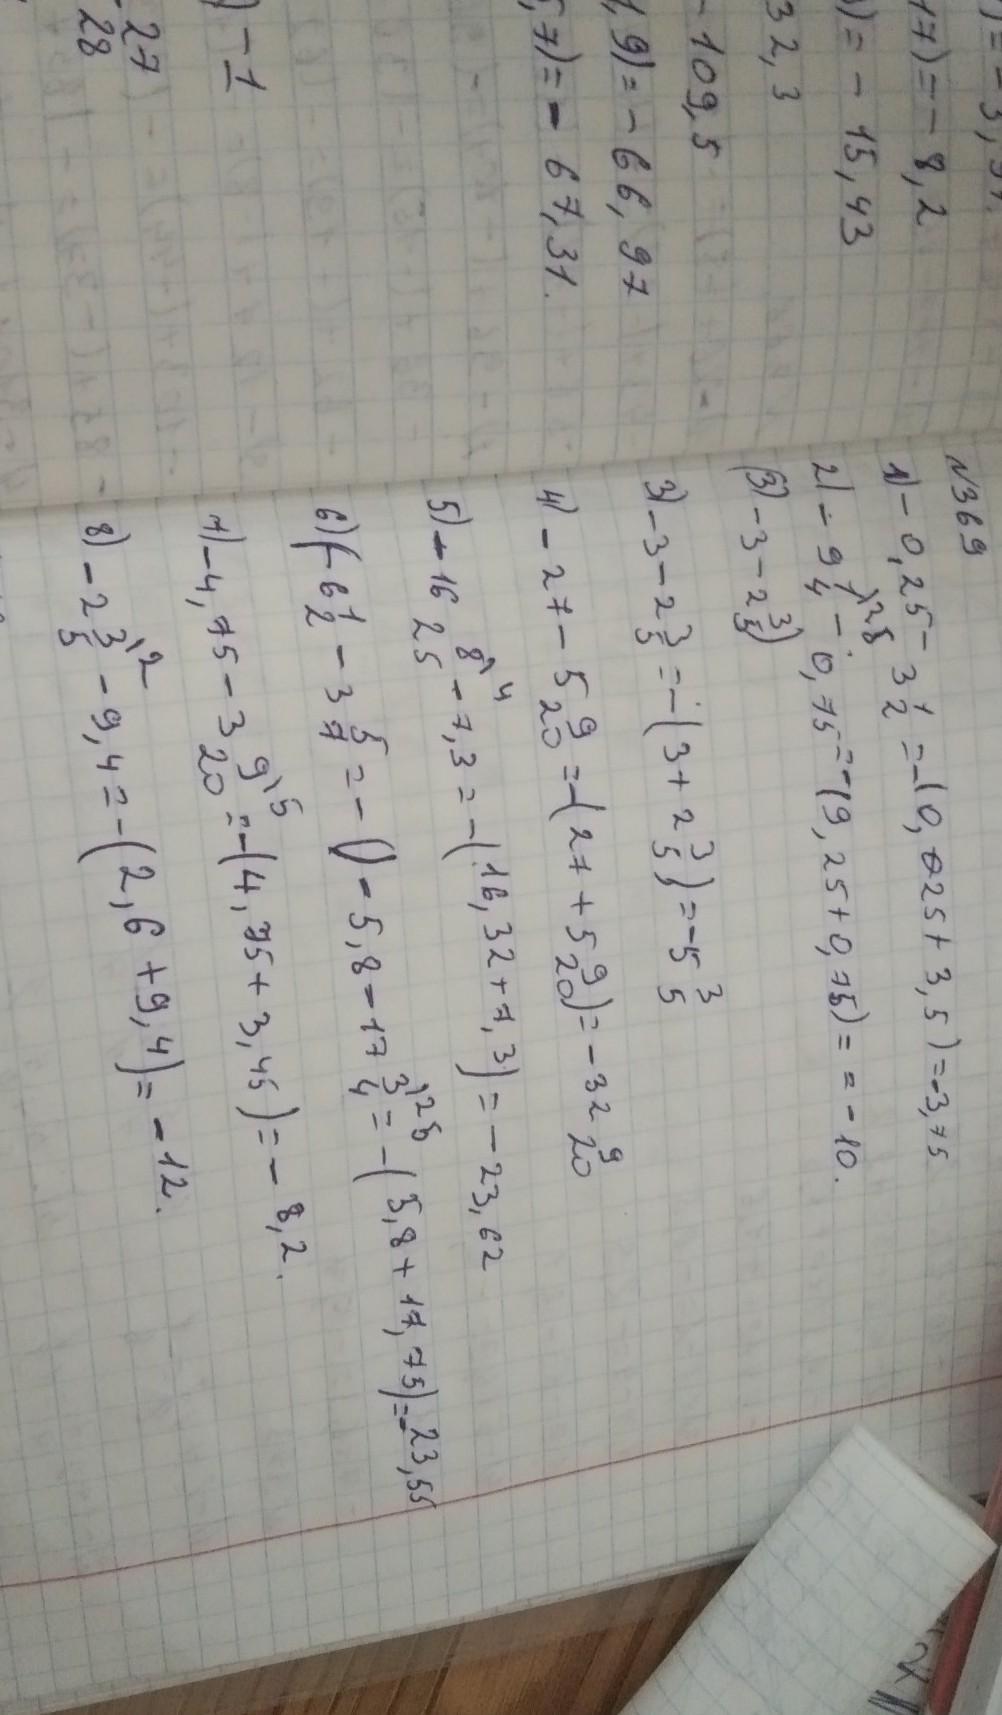 17) = - 8,2
) = - 15,43
32,3
- 109,5
1,9) = - 66,97
,7) = - 67,31.
) - 1
- 27
28
N369
1) - 0,25 - 3 1/2 = -(0,025 + 3,5) = -3,75
2) - 9 1/4 )25 - 0,75 = -(9,25 + 0,75) = = - 10.
(3) - 3 - 2 3/5)
3) - 3 - 2 3/5 = -(3 + 2 3/5) = -5 3/5
4) - 27 - 5 9/20 = -(27 + 5 9/20) = - 32 9/20
5) - 16 8/25 )4 - 7,3 = -(16,32 + 7,3) = - 23,62
6) (- 6 1/2 - 3 5/7 = - () - 5,8 - 17 3/4 )25 = -(5,8 + 17,75) = -23,55
7) - 4,75 - 3 9/20 )5 = -(4,75 + 3,45) = - 8,2.
8) - 2 3/5 )2 - 9,4 = -(2,6 + 9,4) = - 12.